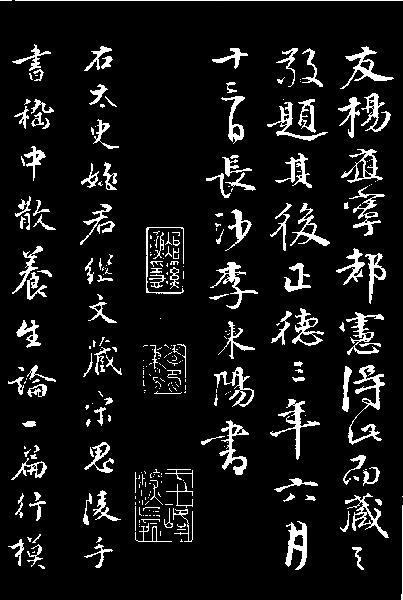 友楊應寧都憲得此而藏之
敬題其後正德三年六月
十三日長沙李東陽書
右太史姚君繼文藏宋思陵手
書嵇中散養生論一篇行模